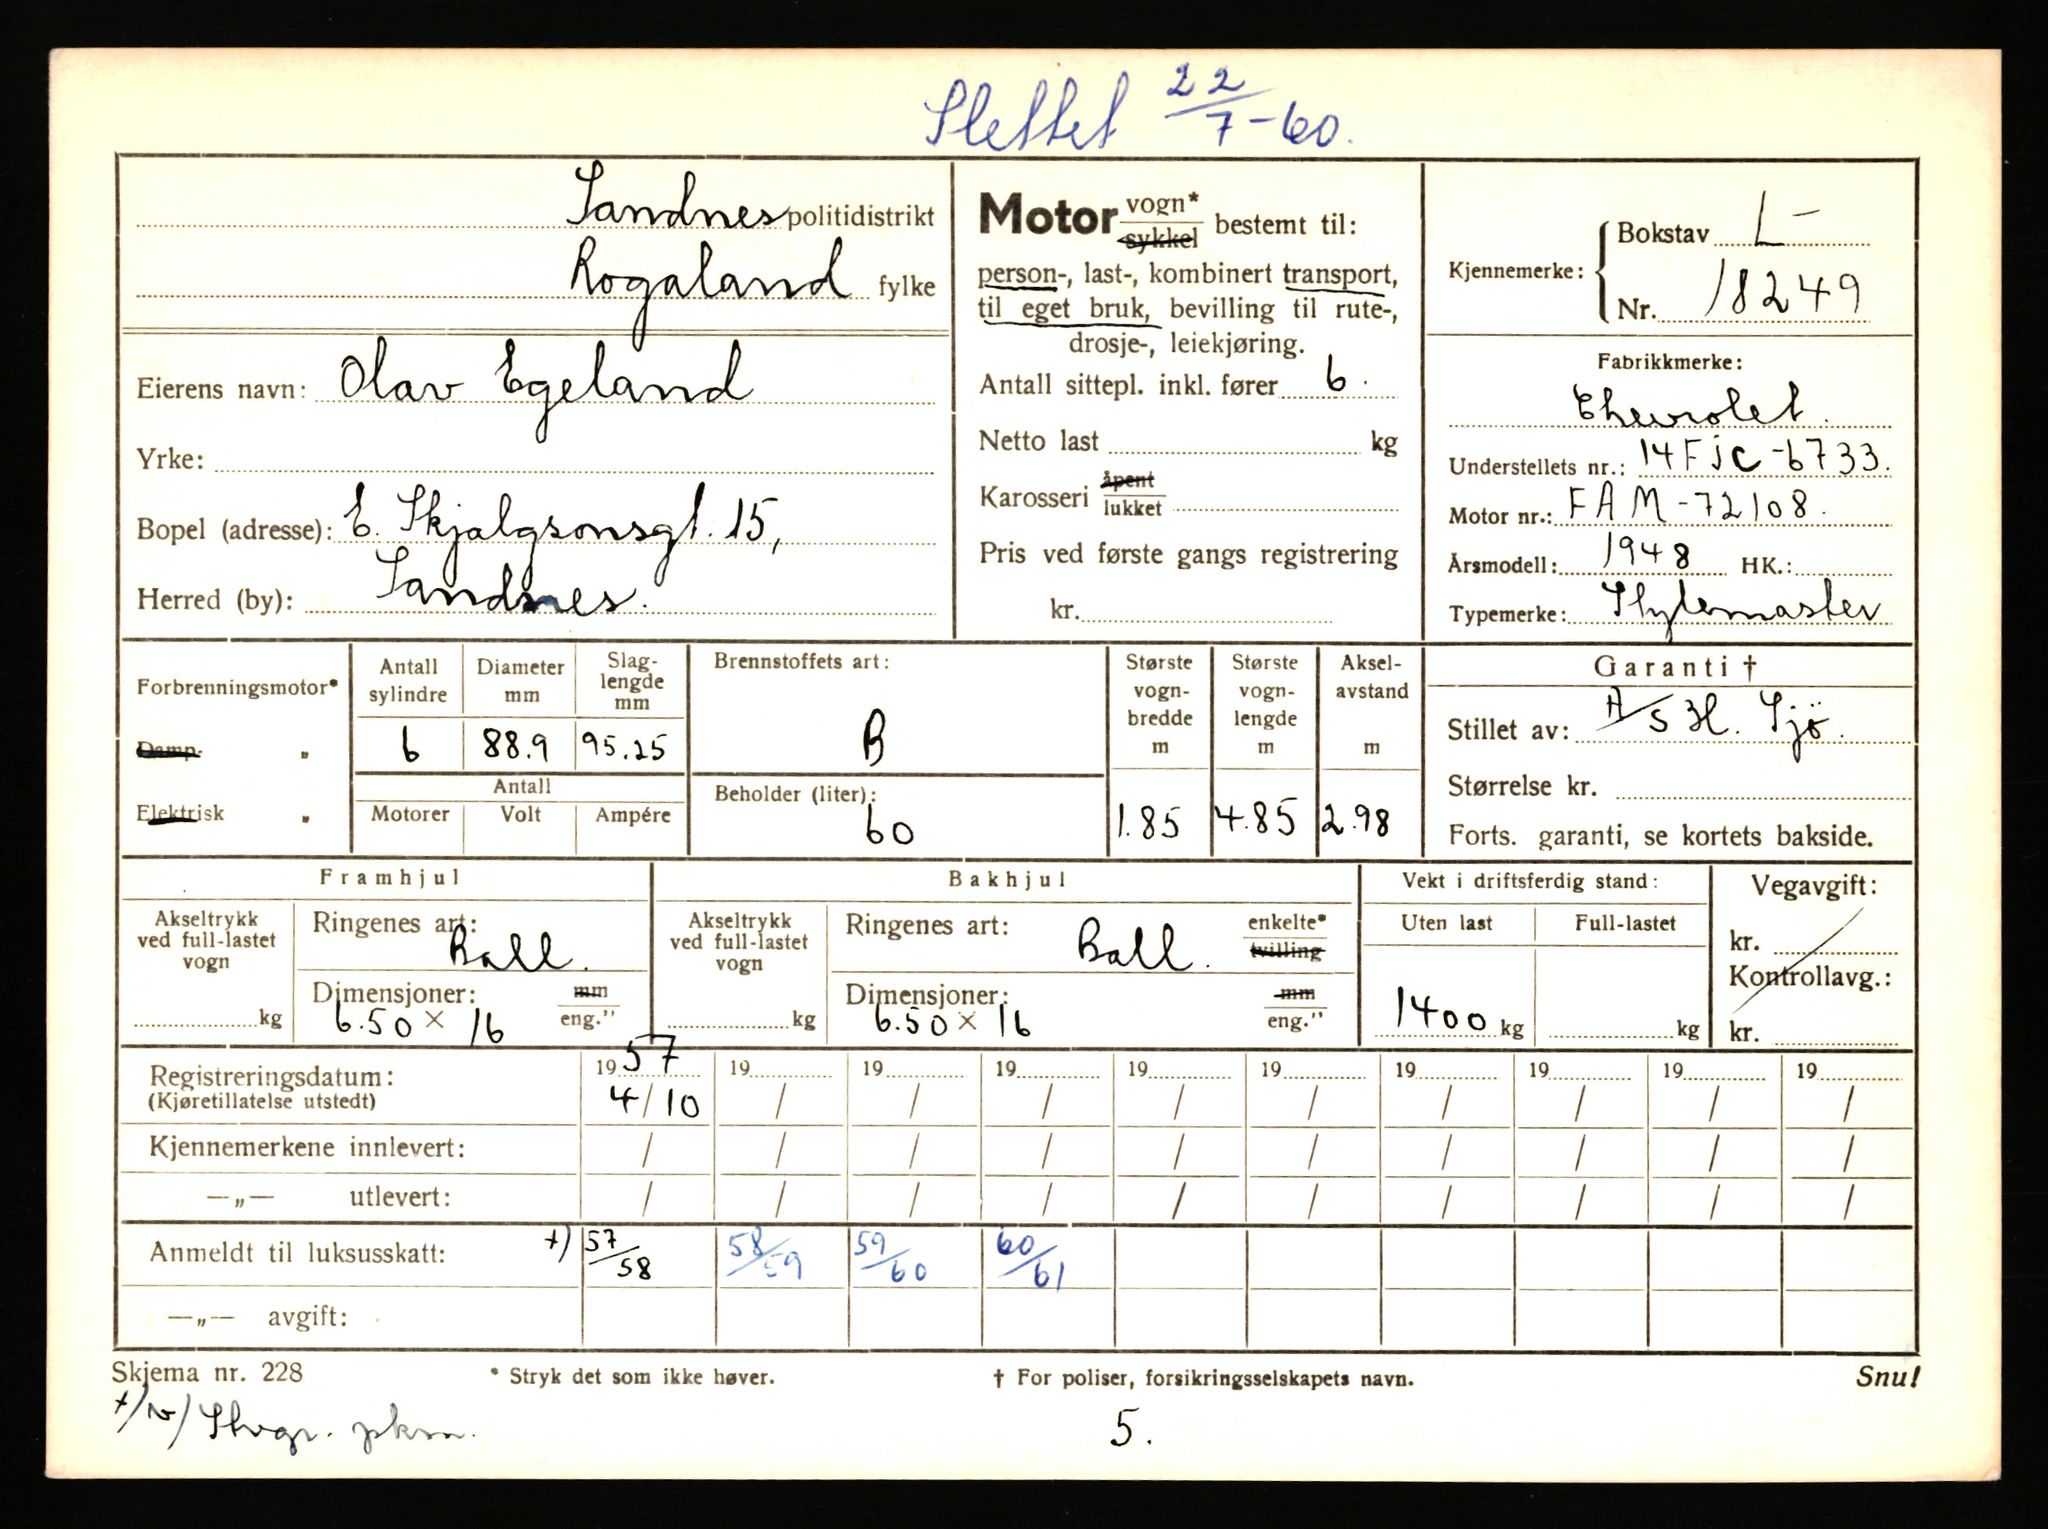 Slettet 22/7-60.
Sandnes politidistrikt
Rogaland fylke
Eierens navn: Olav Egeland
Yrke:
Bopel (adresse): E. Skjalgsonsgt. 15,
Herred (by): Sandnes.
Motor vogn* sykkel bestemt til:
person-, last-, kombinert transport,
til eget bruk, bevilling til rute-,
drosje-, leiekjøring.
Antall sittepl. inkl. fører 6.
Netto last kg
Karosseri åpent lukket
Pris ved første gangs registrering
kr.
Kjennemerke: Bokstav L-
Nr. 18249
Fabrikkmerke:
Chevrolet.
Understellets nr.: 14FJC-6733.
Motor nr.: FAM-72108.
Årsmodell: 1948 HK.:
Typemerke: Stylemaster
Forbrenningsmotor*
Damp- „
Elektrisk „
Antall sylindre Diameter mm Slag-lengde mm
6 88.9 95.25
Antall
Motorer Volt Ampére
Brennstoffets art:
B
Beholder (liter):
60
Største vogn-bredde m Største vogn-lengde m Aksel-avstand m
1.85 4.85 2.98
Garanti †
Stillet av: A/S H. Sjö.
Størrelse kr.
Forts. garanti, se kortets bakside.
Framhjul
Akseltrykk ved full-lastet vogn
kg
Ringenes art: Ball.
Dimensjoner: mm
6.50 × 16 eng."
Bakhjul
Akseltrykk ved full-lastet vogn
kg
Ringenes art: Ball. enkelte* tvilling
Dimensjoner: mm
6.50 × 16 eng."
Vekt i driftsferdig stand:
Uten last Full-lastet
1400 kg kg
Vegavgift:
kr.
Kontrollavg.:
kr.
Registreringsdatum: 1957 19 19 19 19 19 19 19 19 19
(Kjøretillatelse utstedt) 4/10 / / / / / / / / /
Kjennemerkene innlevert: / / / / / / / / / /
—„— utlevert: / / / / / / / / / /
Anmeldt til luksusskatt: +) 57/58 58/59 59/60 60/61
—„— avgift:
Skjema nr. 228 * Stryk det som ikke høver. † For poliser, forsikringsselskapets navn. Snu!
5.